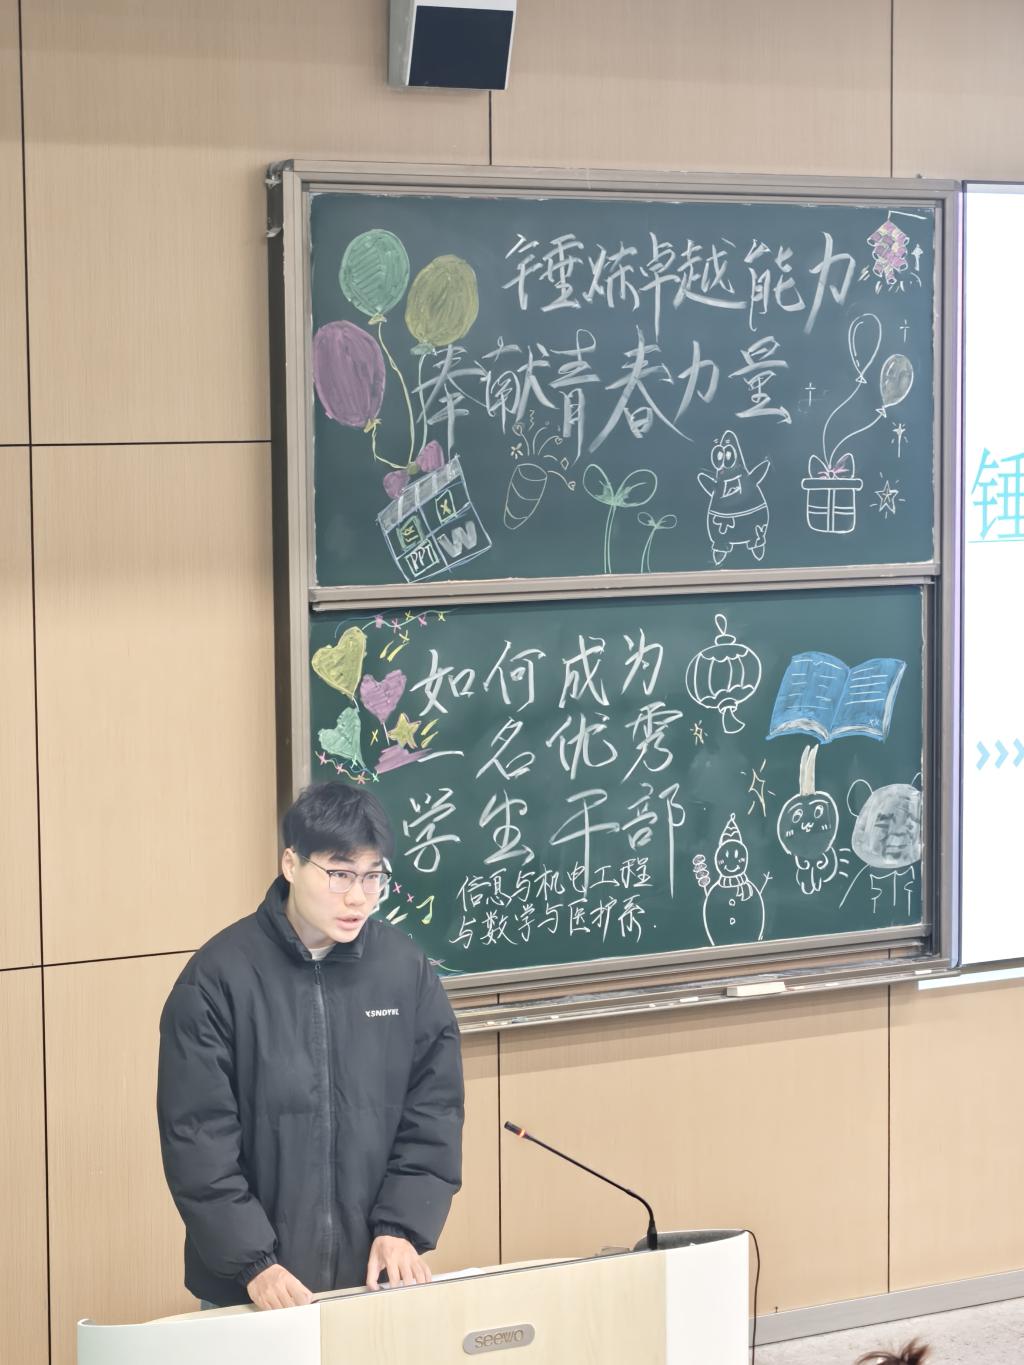 锤炼卓越能力
奉献青春力量
X
PPT
W
如何成为
一名优秀
学生干部
信息与机电工程
与数学与医护系.
锤
XSNDYWL
seewo